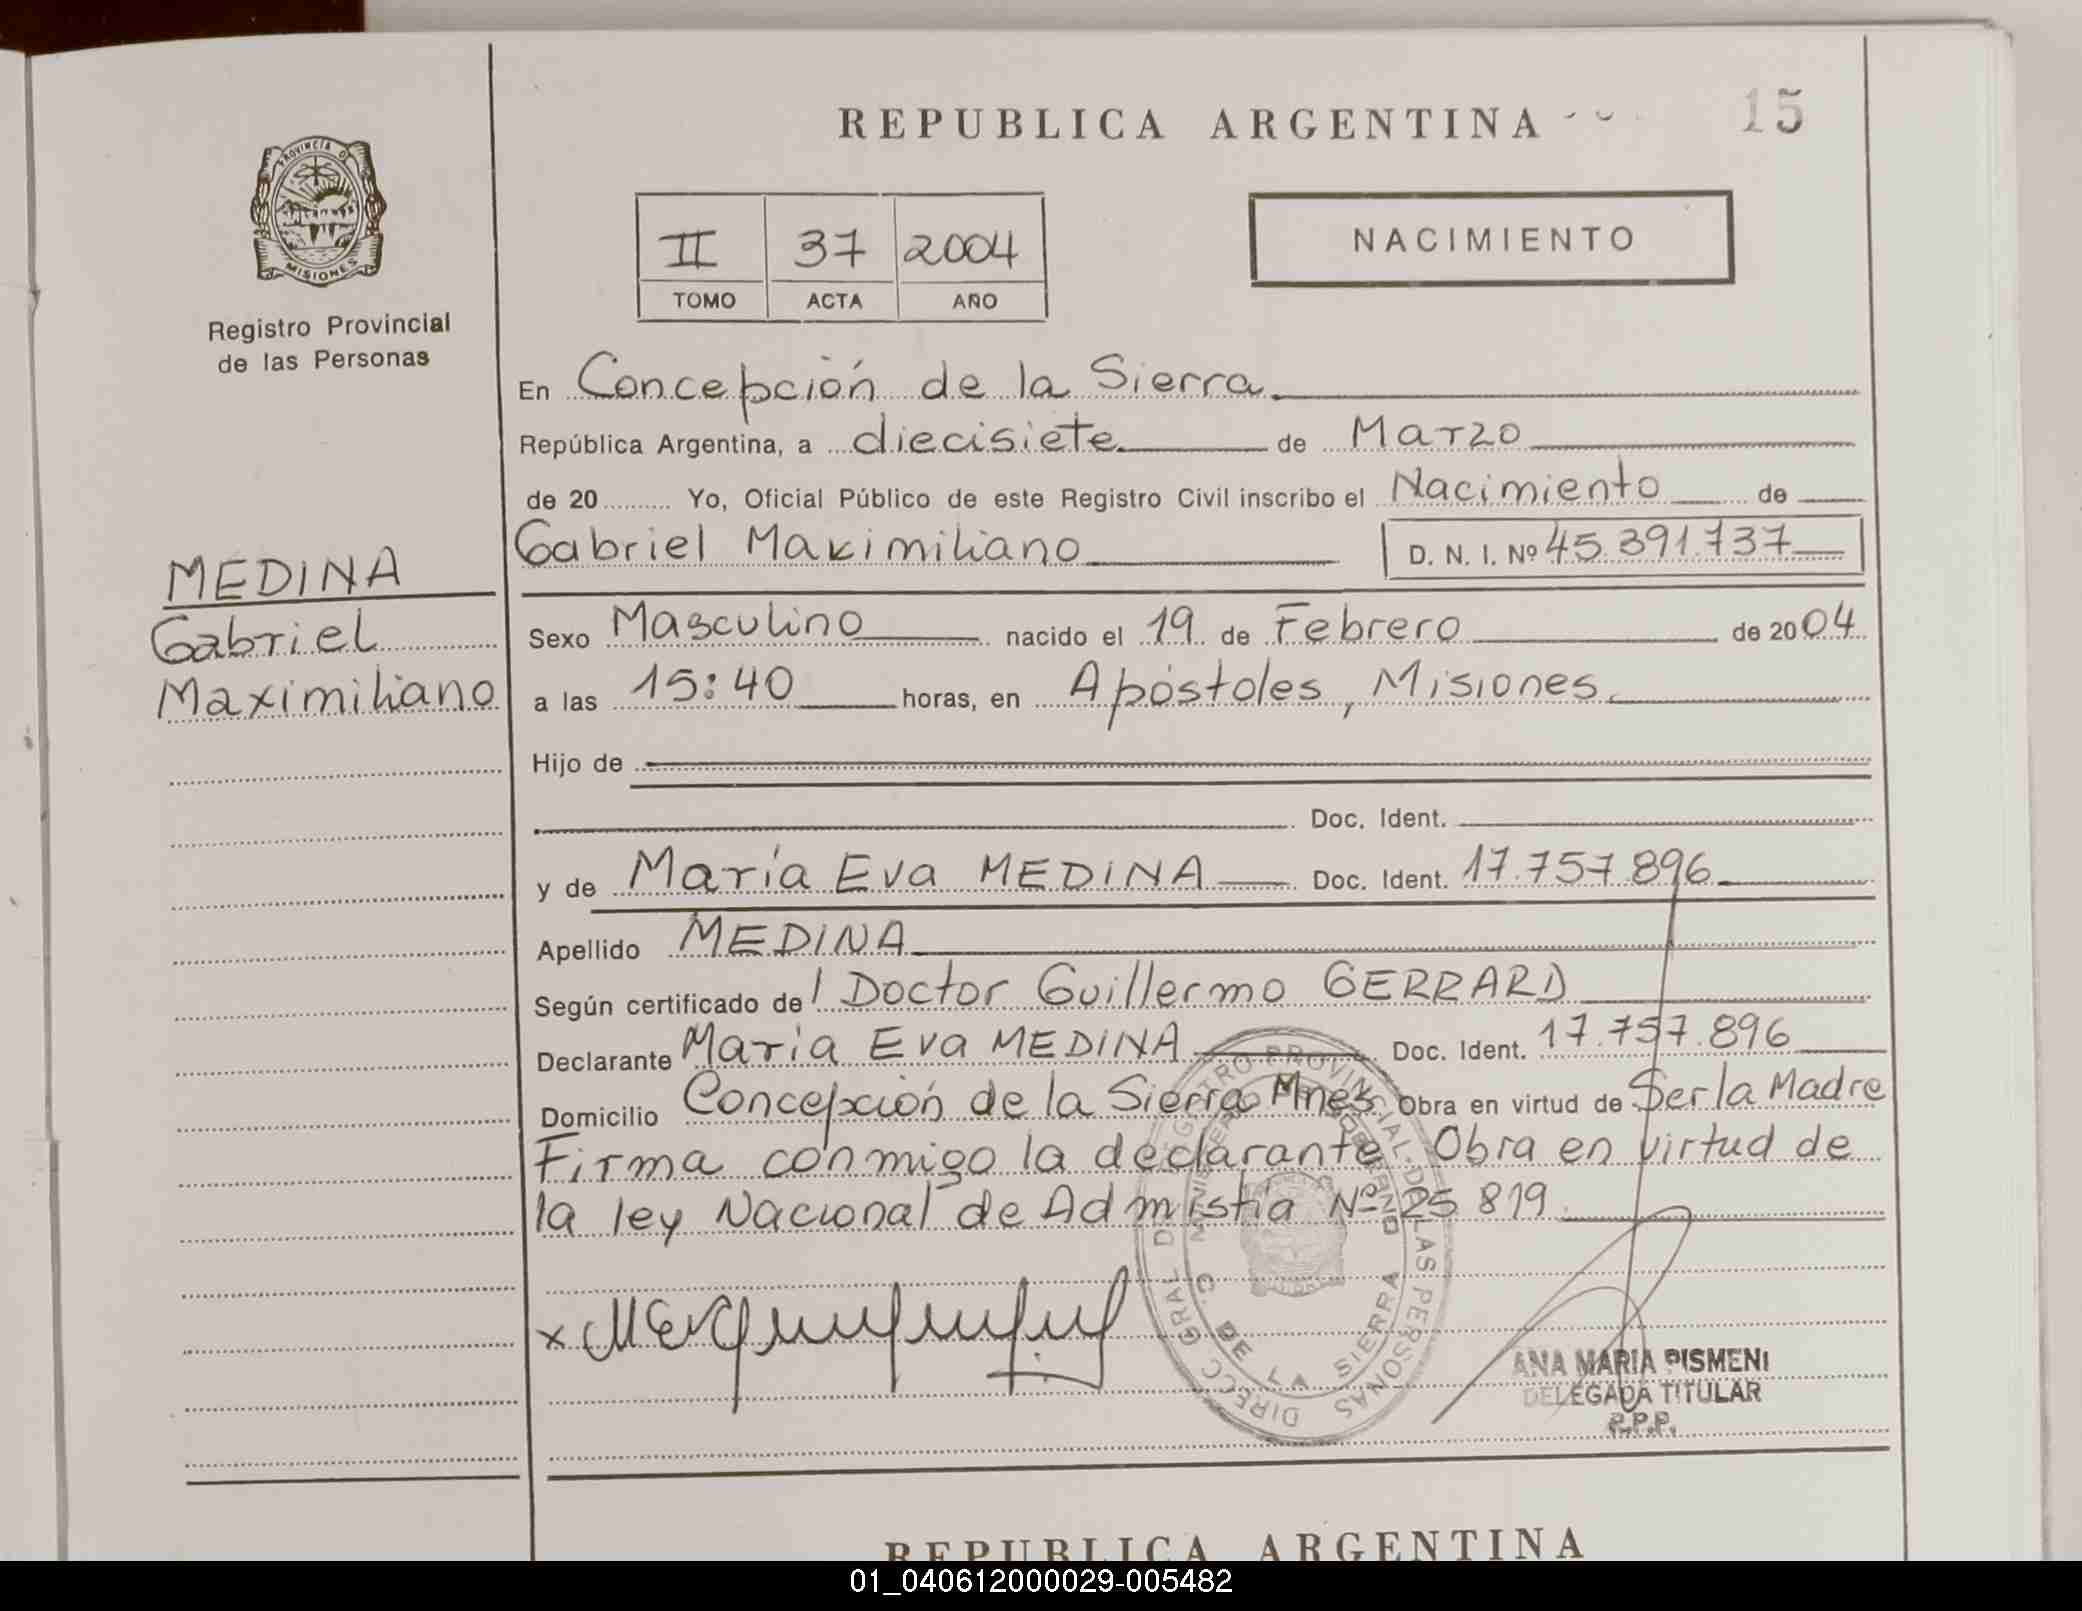 REPUBLICA ARGENTINA
15
PROVINCIA DE
MISIONES
Registro Provincial
de las Personas
II 37 2004
TOMO ACTA AÑO
NACIMIENTO
En Concepción de la Sierra
República Argentina, a diecisiete de Marzo
de 20 Yo, Oficial Público de este Registro Civil inscribo el Nacimiento de
Gabriel Maximiliano D. N. I. Nº 45.391.737
MEDINA
Gabriel
Maximiliano
Sexo Masculino nacido el 19 de Febrero de 2004
a las 15:40 horas, en Apóstoles, Misiones
Hijo de
Doc. Ident.
y de María Eva MEDINA Doc. Ident. 17.757.896
Apellido MEDINA
Según certificado del Doctor Guillermo GERRARD
Declarante María Eva MEDINA Doc. Ident. 17.757.896
Domicilio Concepción de la Sierra Mnes Obra en virtud de Ser la Madre
Firma conmigo la declarante Obra en virtud de
la ley Nacional de Admistía Nº 25 819
DIRECC GRAL DEL REGISTRO PROVINCIAL DE LAS PERSONAS
C. DE LA SIERRA
ANA MARIA PISMENI
DELEGADA TITULAR
R.P.P.
REPUBLICA ARGENTINA
01_040612000029-005482